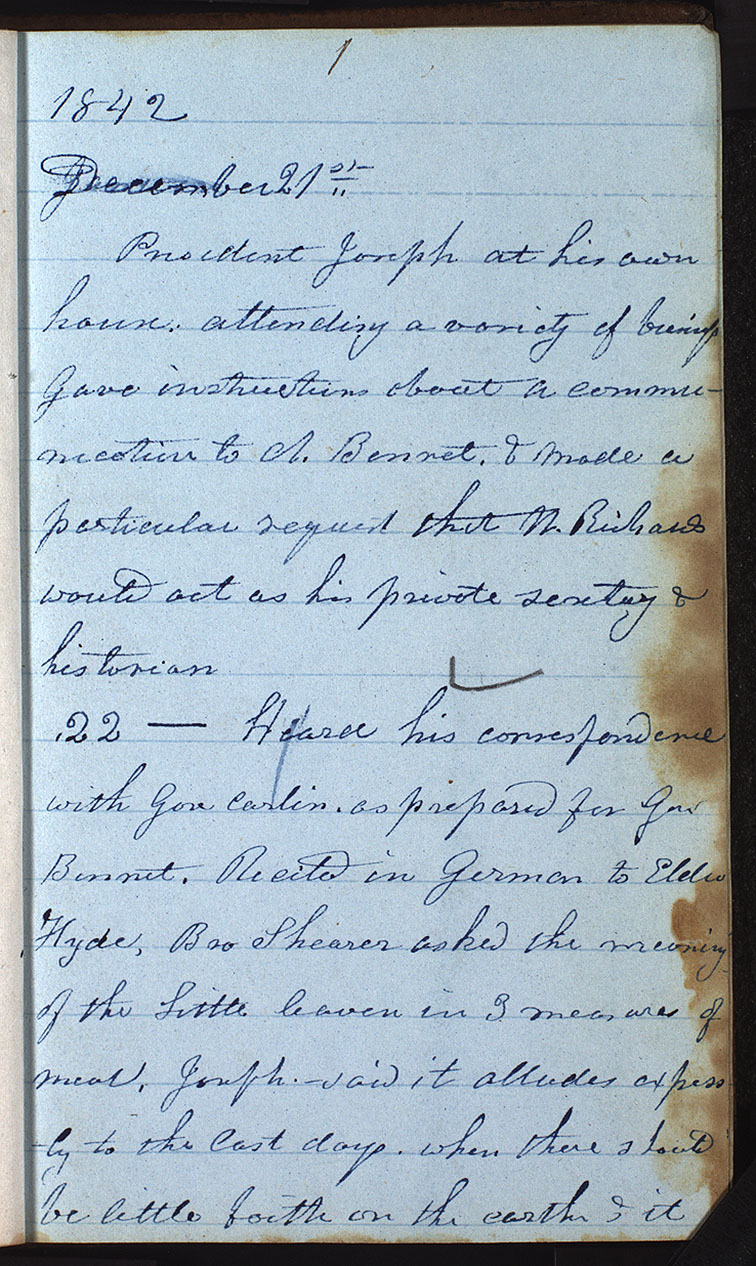 1
1842
December 21st
President Joseph at his own
house. attending a variety of
Gave instructions about a commu-
nication to A. Bennet. & made a
particular request that W. Richards
would act as his private &
historian
.22 — Heard his correspondence
with Gov Carlin. as prepared for Gov
Bennet. Recited in German to Elder
Hyde, Bro Shearer asked the meaning
of the little leaven in 3 measures of
meal. Joseph.- said it alludes express-
-ly to the last days. when there should
be little faith on the earth & it